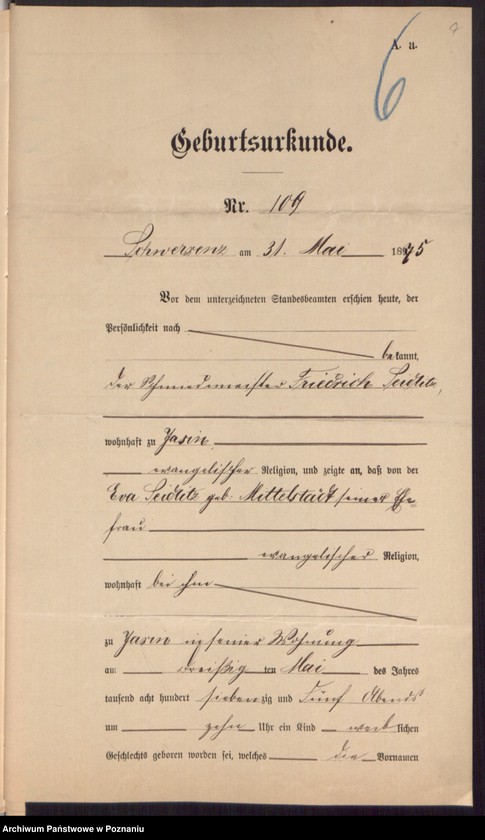 A. u.
6
Geburtsurkunde.
Nr. 109
Schwersenz am 31. Mai 1875
Vor dem unterzeichneten Standesbeamten erschien heute, der
Persönlichkeit nach
bekannt,
der Schmiedemeister Friedrich Seidlitz,
wohnhaft zu Jasin
evangelischer Religion, und zeigte an, daß von der
Eva Seidlitz geb. Mittelstädt seiner Ehe=
frau
evangelischer Religion,
wohnhaft bei ihm
zu Jasin in seiner Wohnung
am dreißig ten Mai des Jahres
tausend acht hundert siebenzig und Fünf Abends
um zehn Uhr ein Kind weiblichen
Geschlechts geboren worden sei, welches die Vornamen
Archiwum Państwowe w Poznaniu